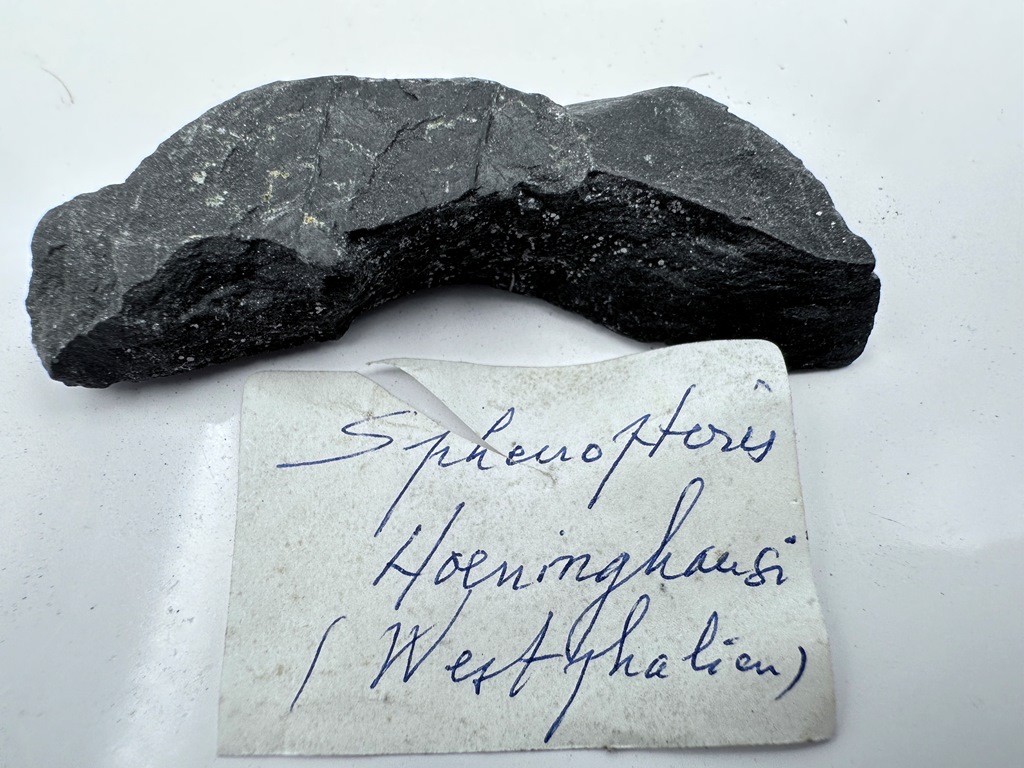 Sphenopteris
Hoeninghausi
(Westphalien)